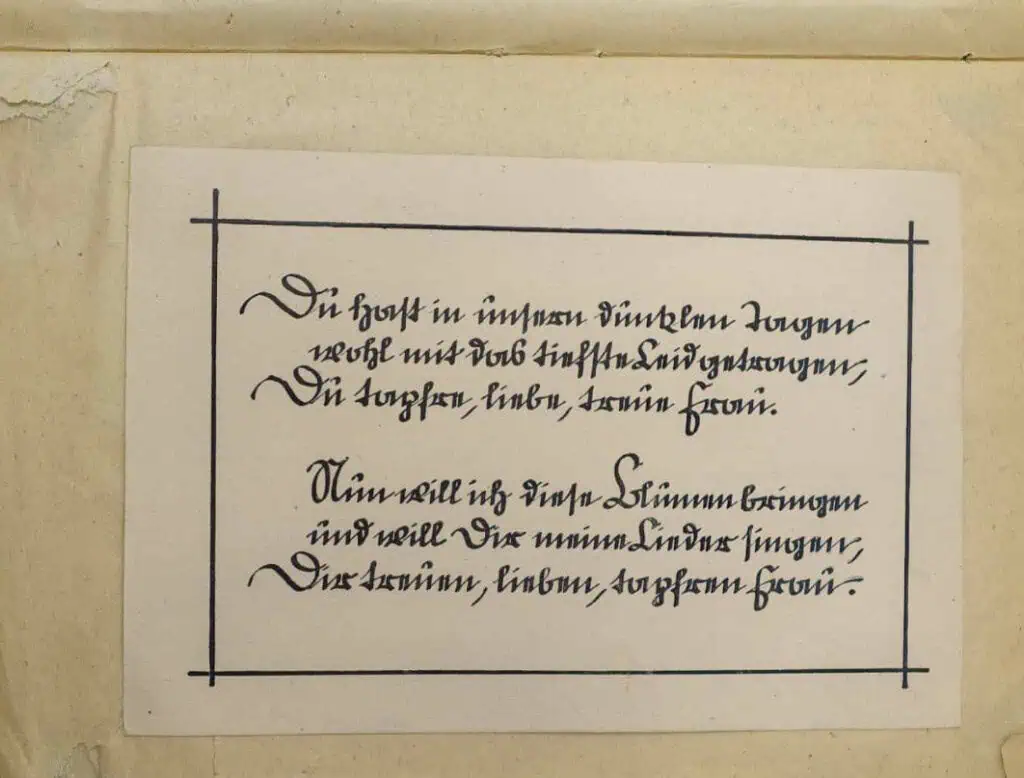 Du hast in unsern dunklen Tagen
wohl mit das tiefste Leid getragen,
Du tapfre, liebe, treue Frau.
Nun will ich diese Blumen bringen
und will Dir meine Lieder singen,
Dir treuen, lieben, tapfren Frau.